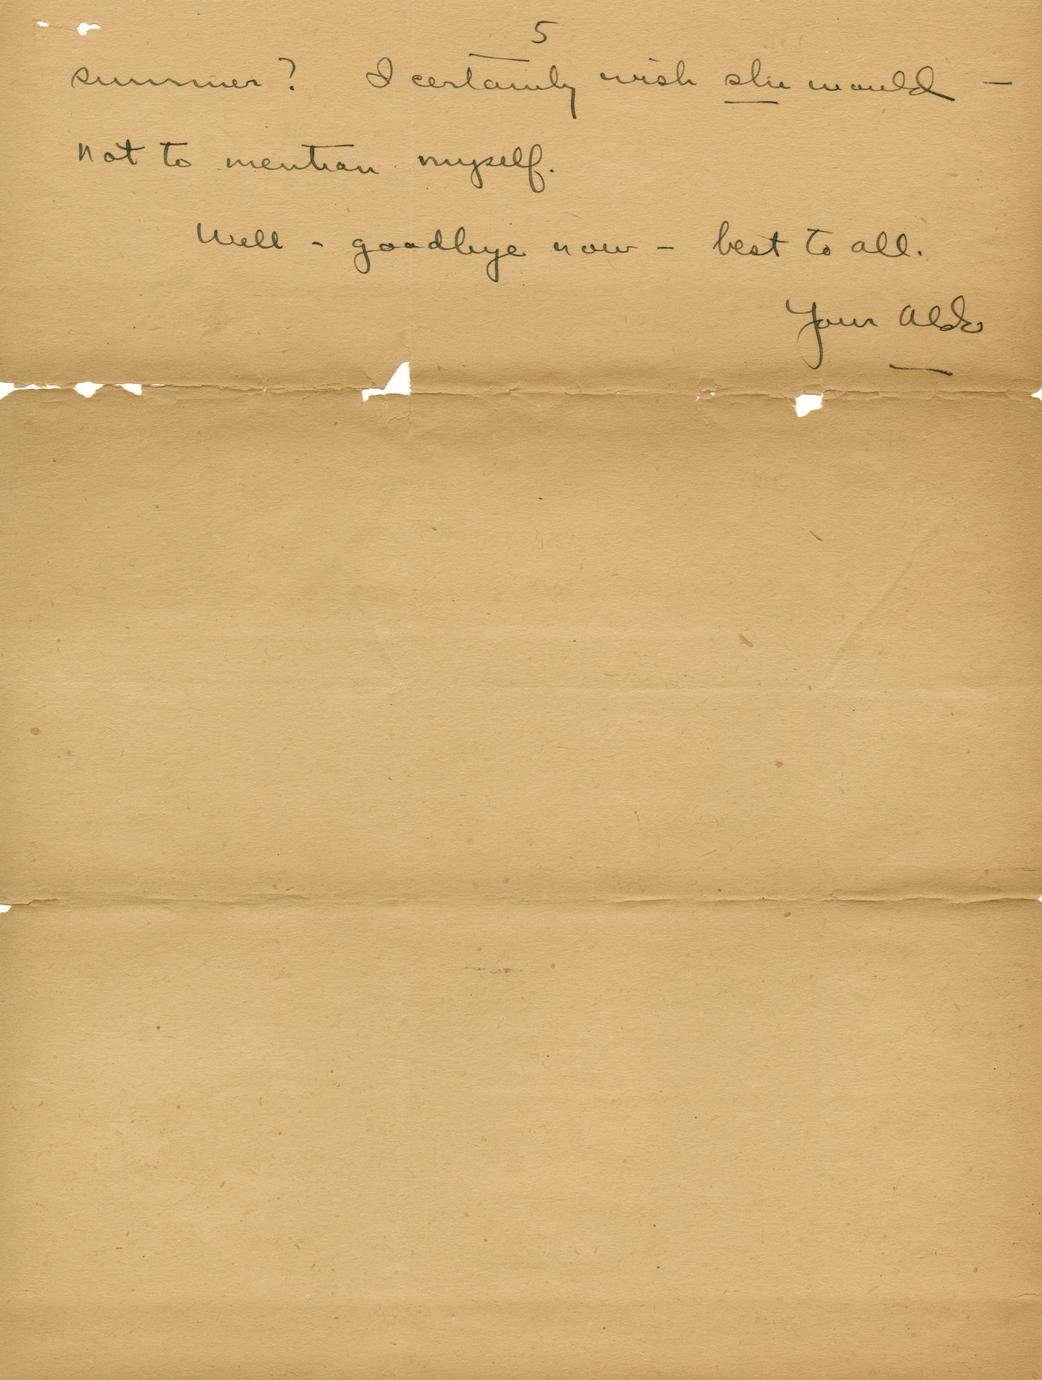 5
summer? I certainly wish she would —
not to mention myself.
Well - goodbye now - best to all.
Your Aldo